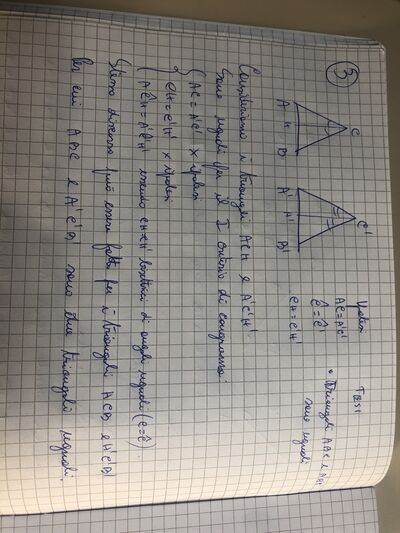 3
C
C'
A H B
A' H' B'
Ipotesi
AC = A'C'
Ĉ = Ĉ'
CH = C'H'
TESI
• triangoli ABC e
sono uguali
Consideriamo i triangoli ACH e A'C'H'
Sono uguali per il I criterio di congruenza:
AC = A'C' x ipotesi
CH = C'H' x ipotesi
AĈH = A'Ĉ'H' essendo CH e CH' bisettrici di angoli uguali (Ĉ = Ĉ')
Stesso discorso può essere fatto per i triangoli HCB e H'C'B'
per cui ABC e A'C'B' sono due triangoli uguali.